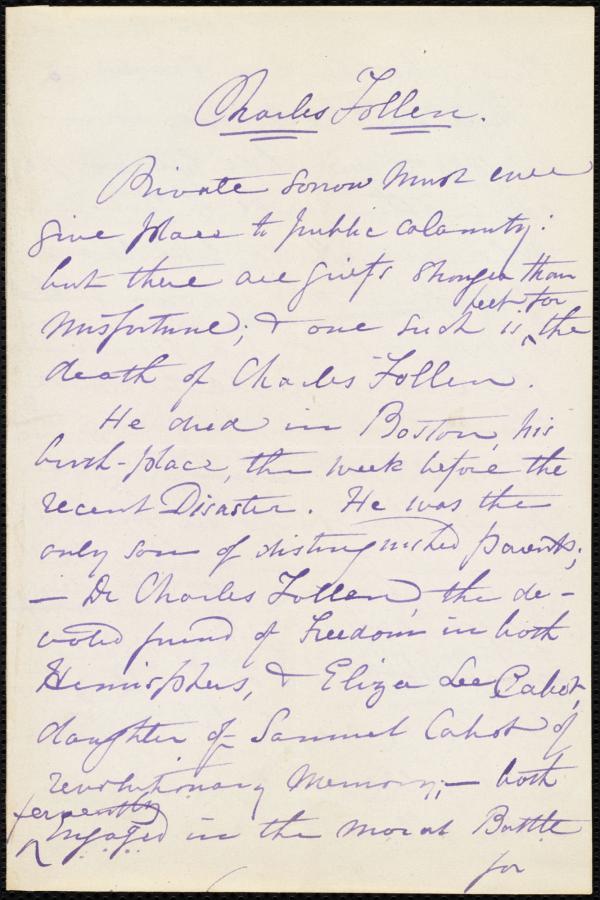 Charles Follen.
Private sorrow must ever
give place to public calamity:
but there are griefs stronger than
misfortune; & one such is, felt for the
death of Charles Follen.
He died in Boston, his
birth-place, the week before the
recent Disaster. He was the
only son of distinguished parents;
— Dr Charles Follen, the de-
voted friend of Freedom in both
Hemisphers, & Eliza Lee Cabot,
daughter of Samuel Cabot of
revolutionary memory; — both
fervently
engaged in the moral Battle
for